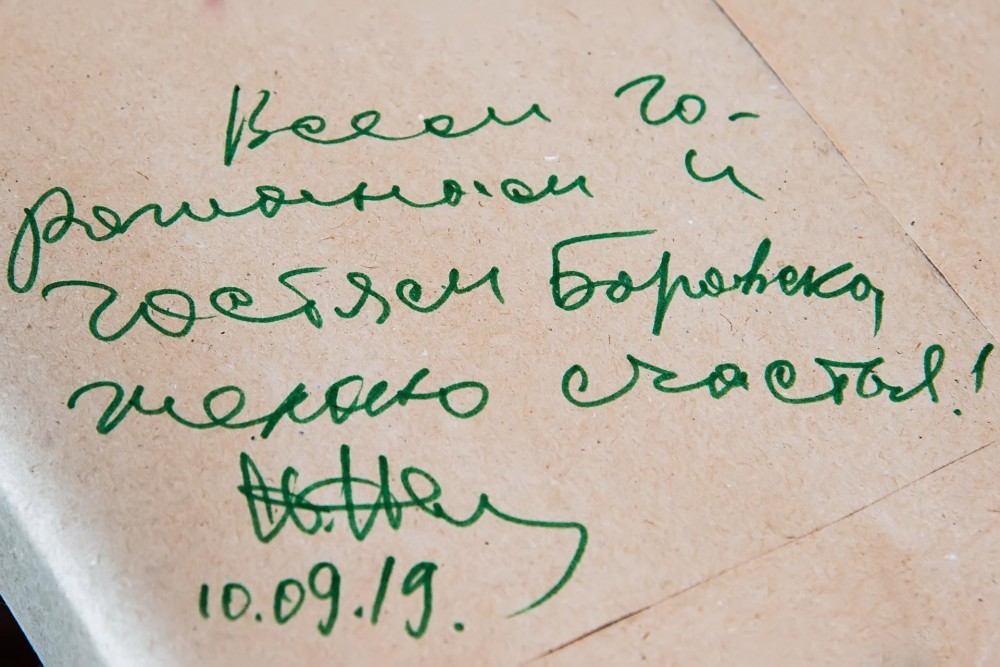 Всем го-
рожанам и
гостям Боровска
желаю счастья!
10.09.19.